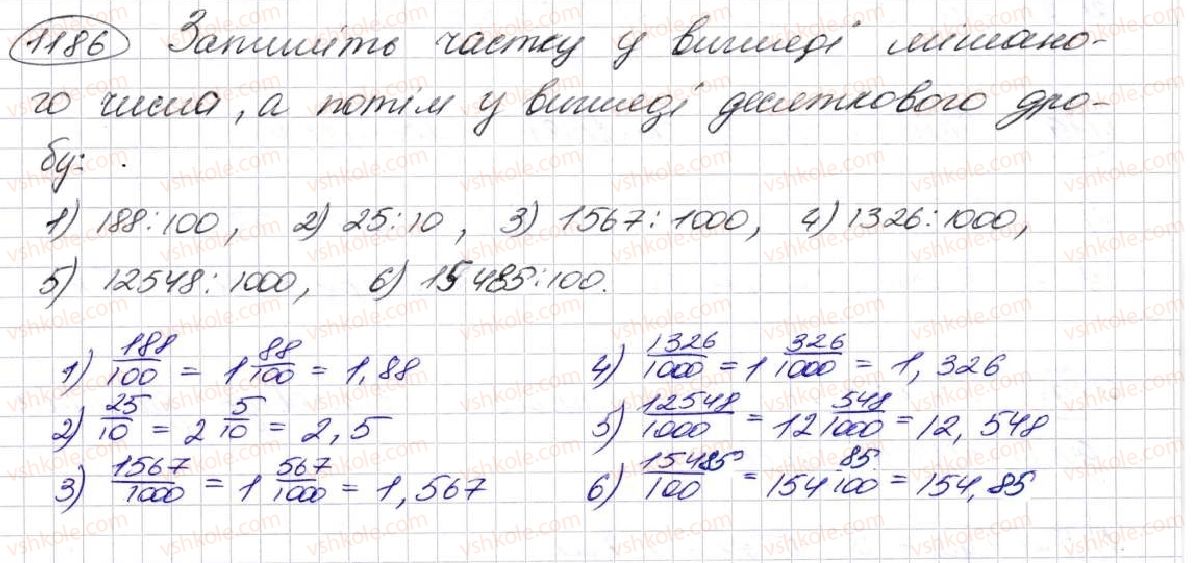 1186 Запишіть частку у вигляді мішано-
го числа, а потім у вигляді десяткового дро-
бу:
1) 188:100, 2) 25:10, 3) 1567:1000, 4) 1326:1000,
5) 12548:1000, 6) 15485:100.
1) 188/100 = 1 88/100 = 1,88
2) 25/10 = 2 5/10 = 2,5
3) 1567/1000 = 1 567/1000 = 1,567
4) 1326/1000 = 1 326/1000 = 1,326
5) 12548/1000 = 12 548/1000 = 12,548
6) 15485/100 = 154 85/100 = 154,85
vshkole.com